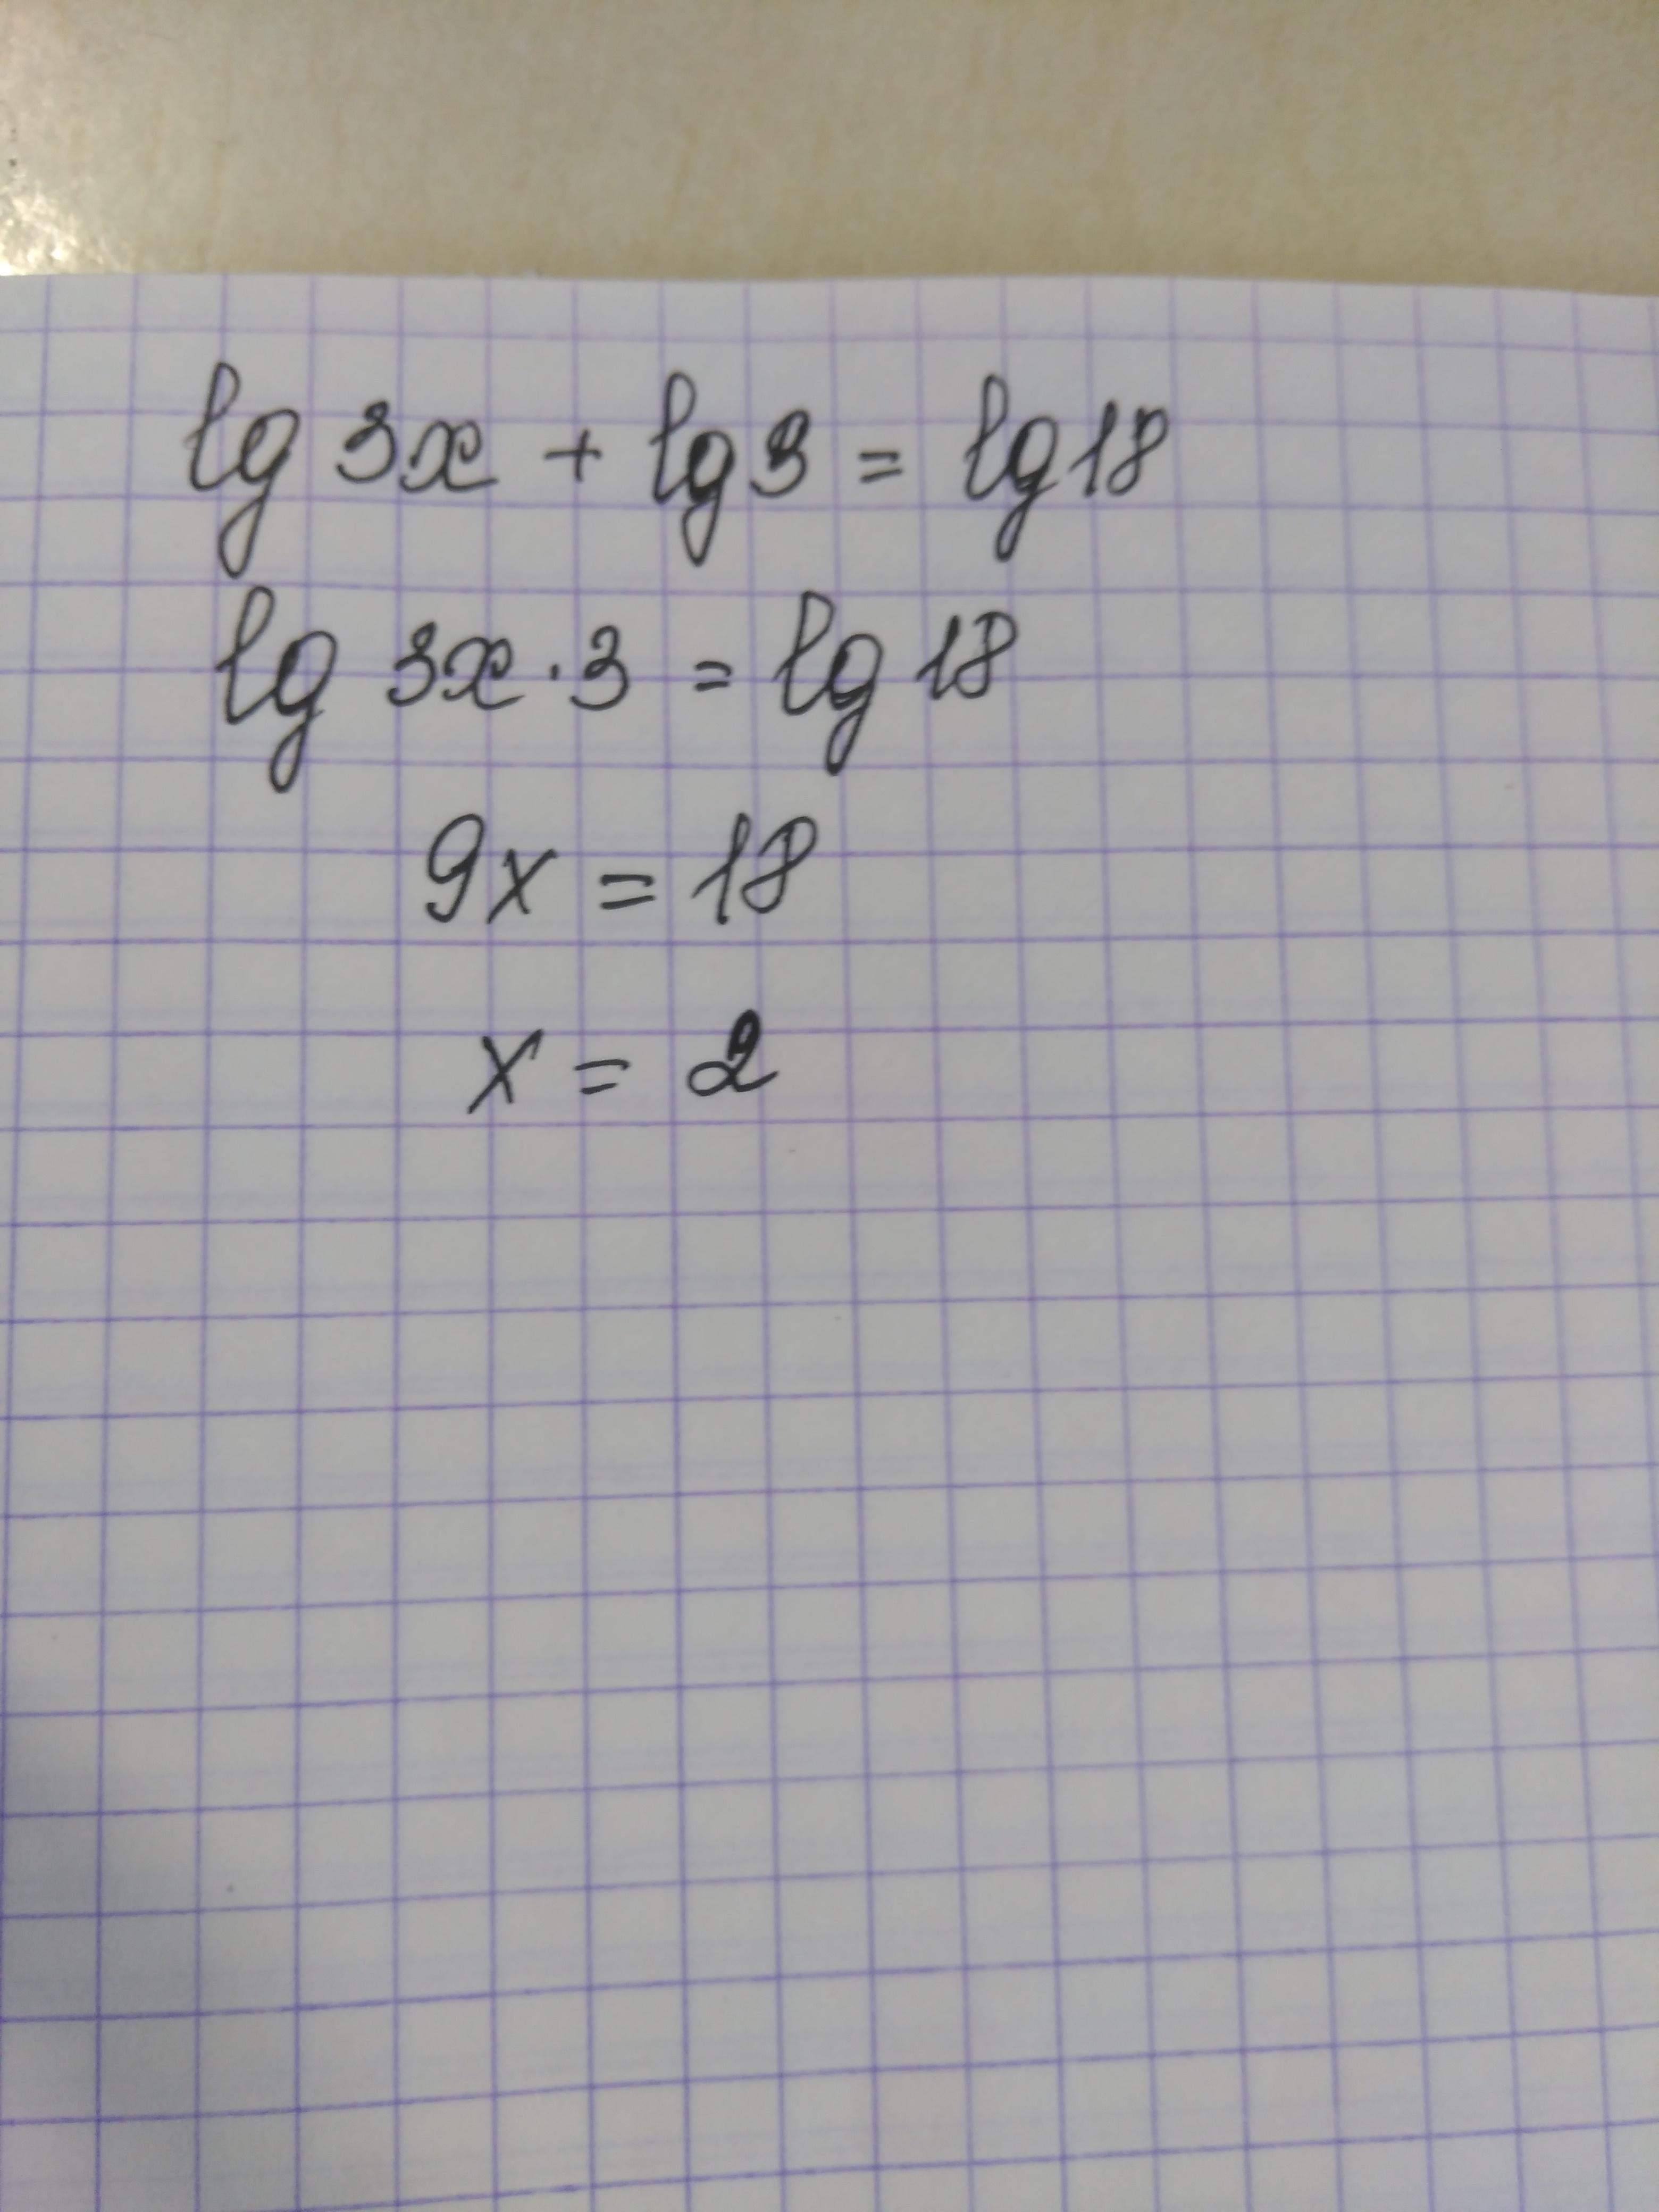 lg 3x + lg 3 = lg 18
lg 3x · 3 = lg 18
9x = 18
x = 2